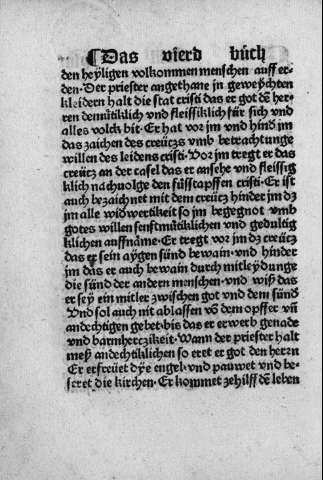 ¶Das vierd bůch
den heyligen volkommen menschen auff er-
den. Der priester angethane in geweychten
kleidern halt die stat cristi das er got dē her-
ren demůtiklich und fleissiklich für sich und
alles volck bit. Er hat vor jm und hindṡ jm
das zaichen des creücзs umb betrachtunge
willen des leidens cristi. Vor jm tregt er das
creücz an der casel das er ansehe und fleissig
klich nachuolge den fůsstapffen cristi. Er ist
auch bezaichnet mit dem creücz hinder jm dz
jm alle widwertikeit so jm begegnot umb
gotes willen senftmütiklichen und gedultig
klichen auffnäme. Er tregt vor jm dz creücz
das er sein aygen sünd bewain. und hinder
jm das er auch bewain durch mitleydunge
die sünd der andern menschen. und wiß das
er sey ein mitler zwischen got und dem sünd
Und sol auch nit ablassen võ dem opffer uñ
andechtigen gebet. bis das er erwerb genade
und barmherczikeit. Wann der priester halt
meß andechtiklichen so eret er got den herrn
Er erfreüet dye engel. und pauwet und be-
seret die kirchen. Er kommet zehilff dē leben